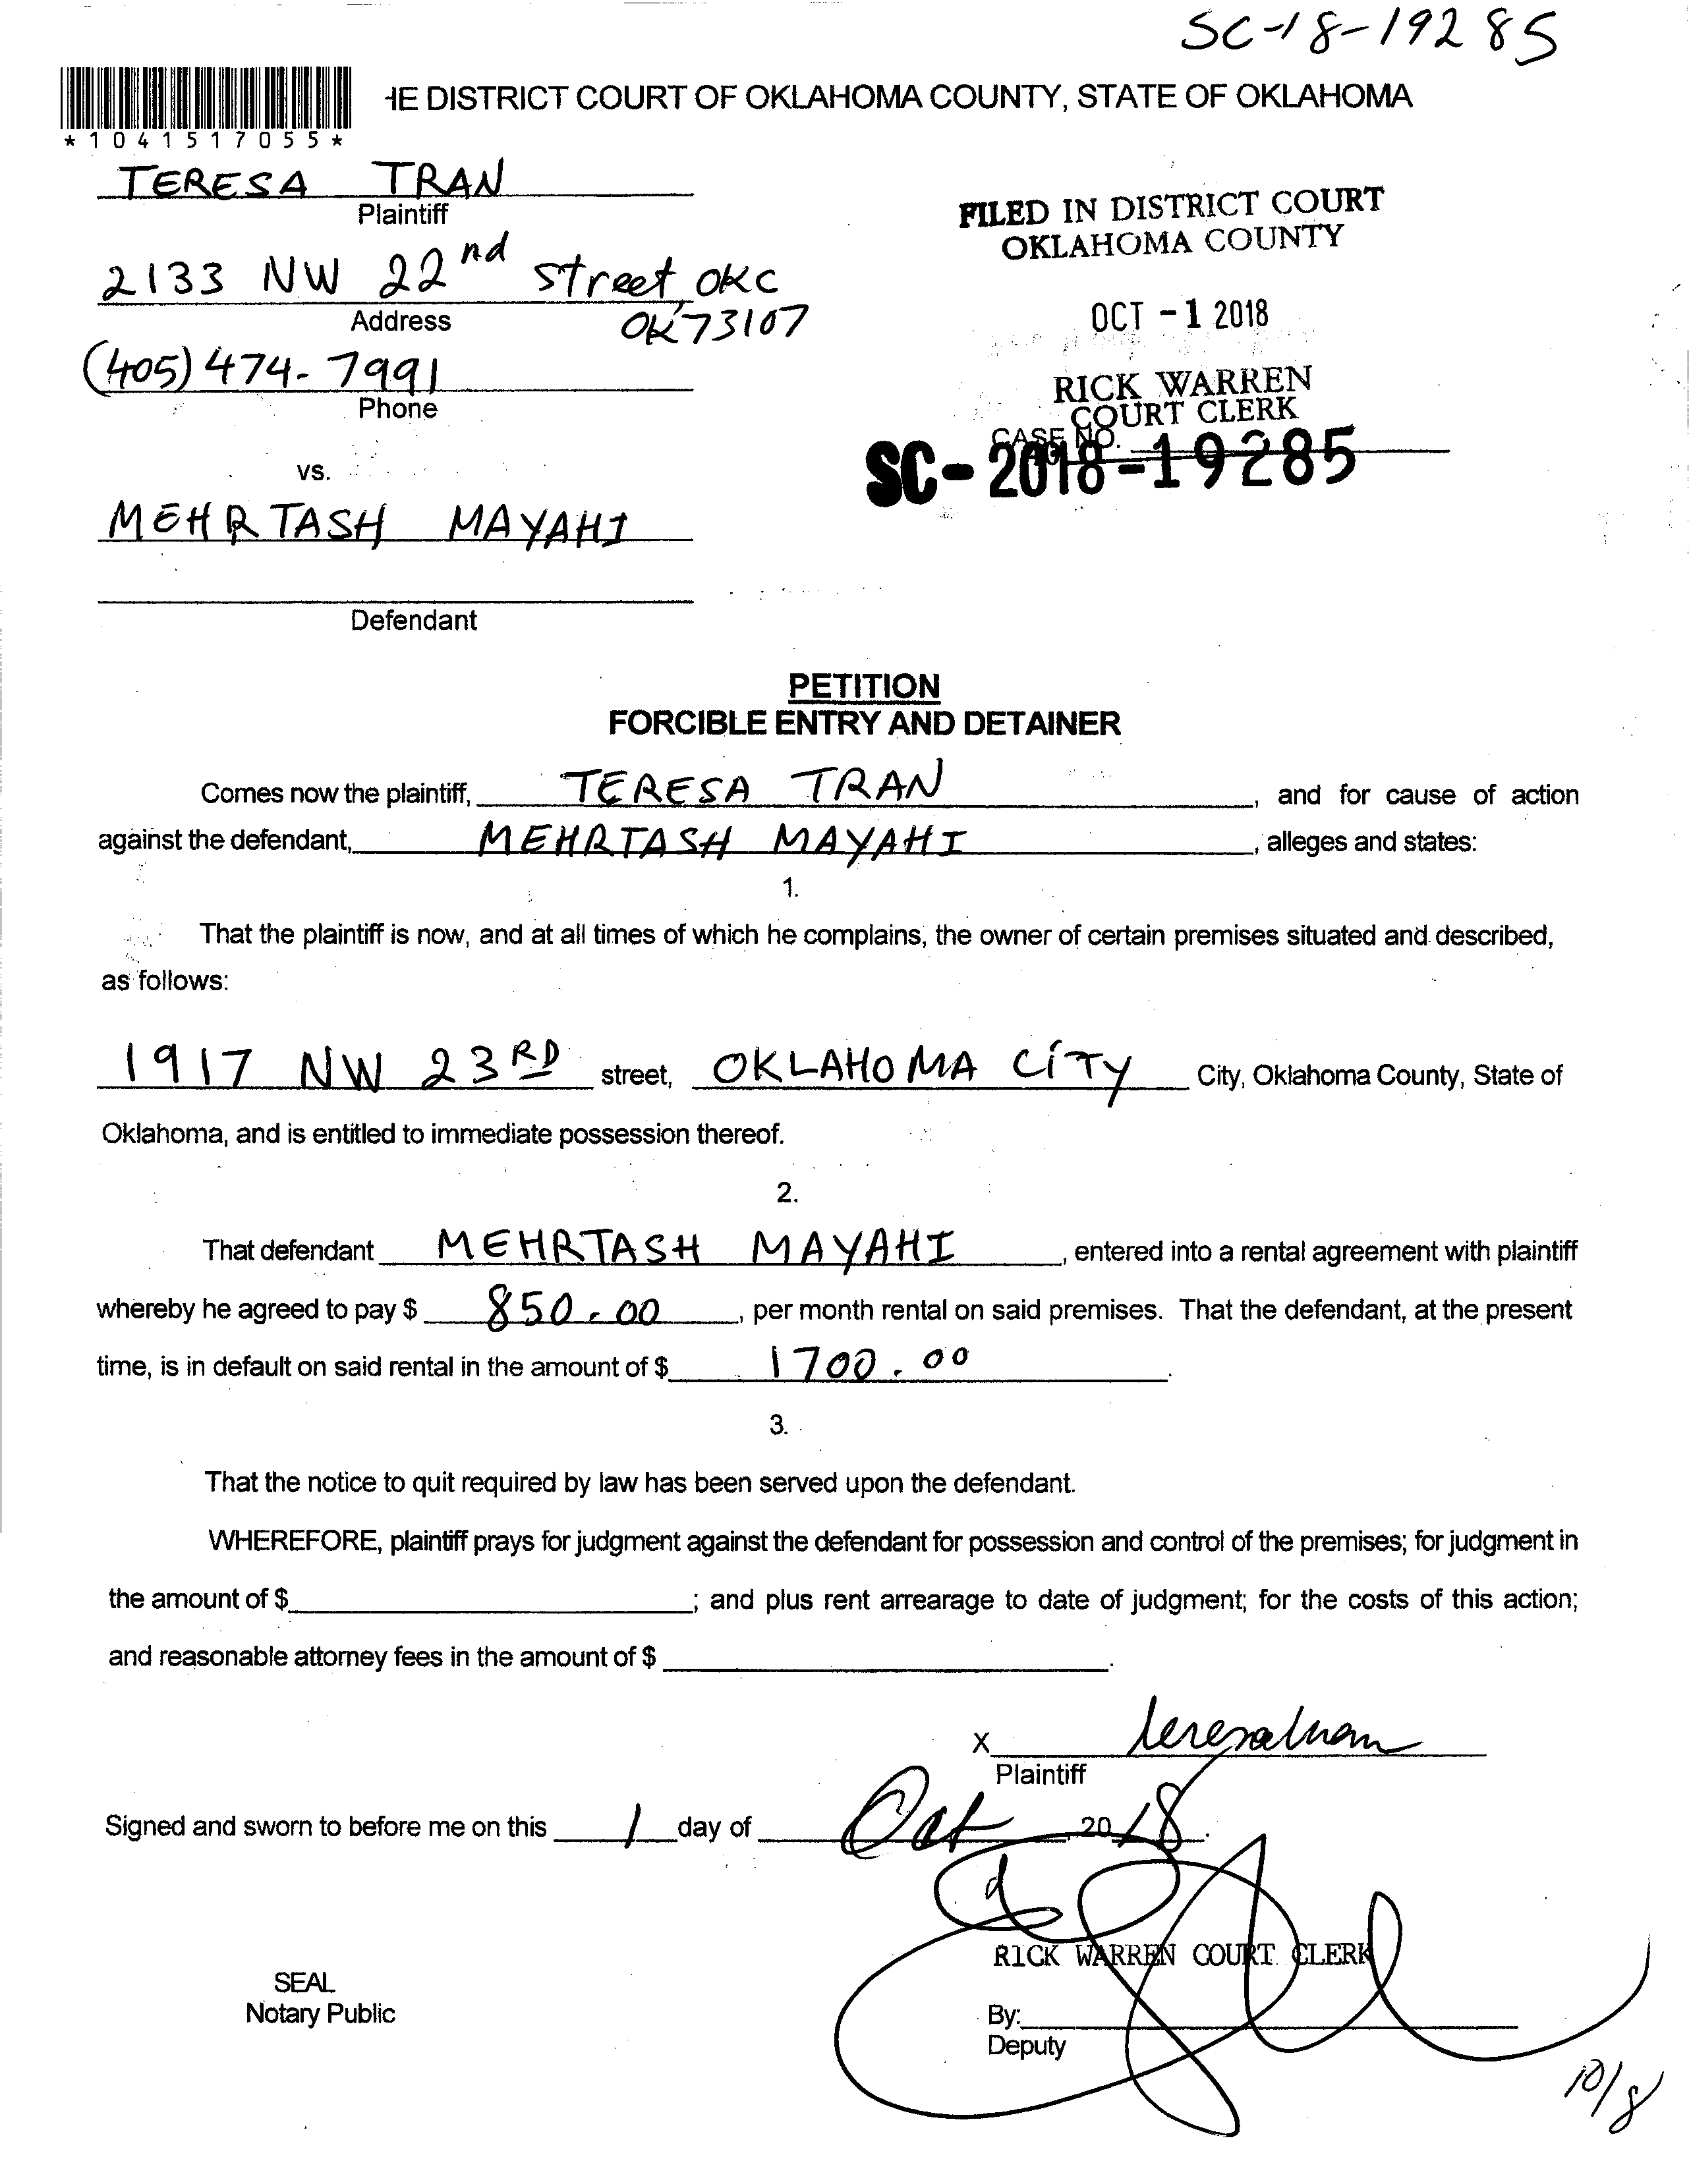 SC-18-19285
HE DISTRICT COURT OF OKLAHOMA COUNTY, STATE OF OKLAHOMA
*1041517055*
TERESA TRAN
Plaintiff
FILED IN DISTRICT COURT
OKLAHOMA COUNTY
2133 NW 22nd Street, OKC
Address
OK 73107
OCT - 1 2018
(405) 474-7991
Phone
RICK WARREN
COURT CLERK
CASE NO.
SC-2018-19285
vs.
MEHRTASH MAYAHI
Defendant
PETITION
FORCIBLE ENTRY AND DETAINER
Comes now the plaintiff, TERESA TRAN, and for cause of action
against the defendant, MEHRTASH MAYAHI, alleges and states:
1.
That the plaintiff is now, and at all times of which he complains, the owner of certain premises situated and described,
as follows:
1917 NW 23RD street, OKLAHOMA CITY City, Oklahoma County, State of
Oklahoma, and is entitled to immediate possession thereof.
2.
That defendant MEHRTASH MAYAHI, entered into a rental agreement with plaintiff
whereby he agreed to pay $ 850.00, per month rental on said premises. That the defendant, at the present
time, is in default on said rental in the amount of $ 1700.00.
3.
That the notice to quit required by law has been served upon the defendant.
WHEREFORE, plaintiff prays for judgment against the defendant for possession and control of the premises; for judgment in
the amount of $ ; and plus rent arrearage to date of judgment; for the costs of this action;
and reasonable attorney fees in the amount of $ .
X Teresa Tran
Plaintiff
Signed and sworn to before me on this 1 day of Oct, 2018.
RICK WARREN COURT CLERK
SEAL
Notary Public
By:
Deputy
10/8